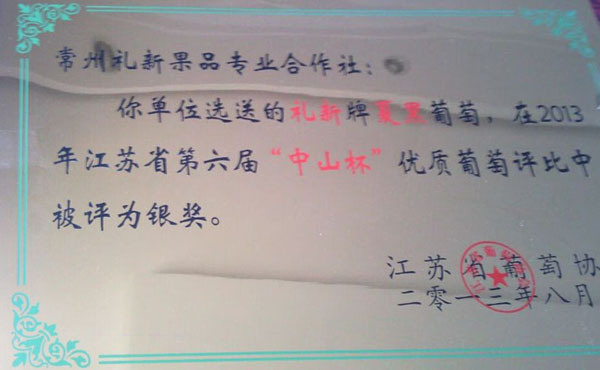 常州礼新果品专业合作社：
你单位选送的礼新牌夏黑葡萄，在2013
年江苏省第六届“中山杯”优质葡萄评比中
被评为银奖。
江苏省葡萄协
二零一三年八月